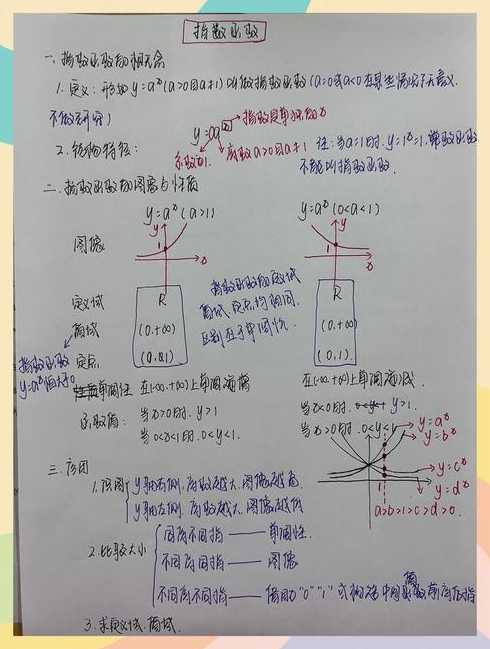 指数函数
一、指数函数的相关概念
1.定义:形如y=aˣ(a>0且a≠1)叫做指数函数(a=0或a<0在某些情况下无意义,
不做研究)
y=aˣ
指数是单独的x
2.结构特征:
系数为1.
底数a>0且a≠1
注:当a=1时.y=1ˣ=1.常数函数
不能叫指数函数.
二、指数函数的图像与性质
y=aˣ(a>1)
y=aˣ(0<a<1)
图像
y
1
x
y
1
x
定义域
R
R
值域
(0.+∞)
(0.+∞)
定点
(0.1)
(0.1)
指数函数的定义域
值域、定点均相同.
区别在于单调性.
指数函数
y=aˣ值大于0
单调性 在(-∞.+∞)上单调递增
在(-∞.+∞)上单调递减.
函数值: 当x>0时.y>1
当x<0时. y>1.
当x<0时.0<y<1.
当x>0时.0<y<1
三.应用
1.识图
y轴右侧,底数越大.图像越高
y轴左侧,底数越大.图像越低
y=aˣ
y=bˣ
y=cˣ
y=dˣ
1
a>b>1>c>d>0.
2.比较大小
同底不同指——单调性.
不同底同指——图像
不同底不同指——借助“0”“1”或构造中间值
3.求定义域.值域.